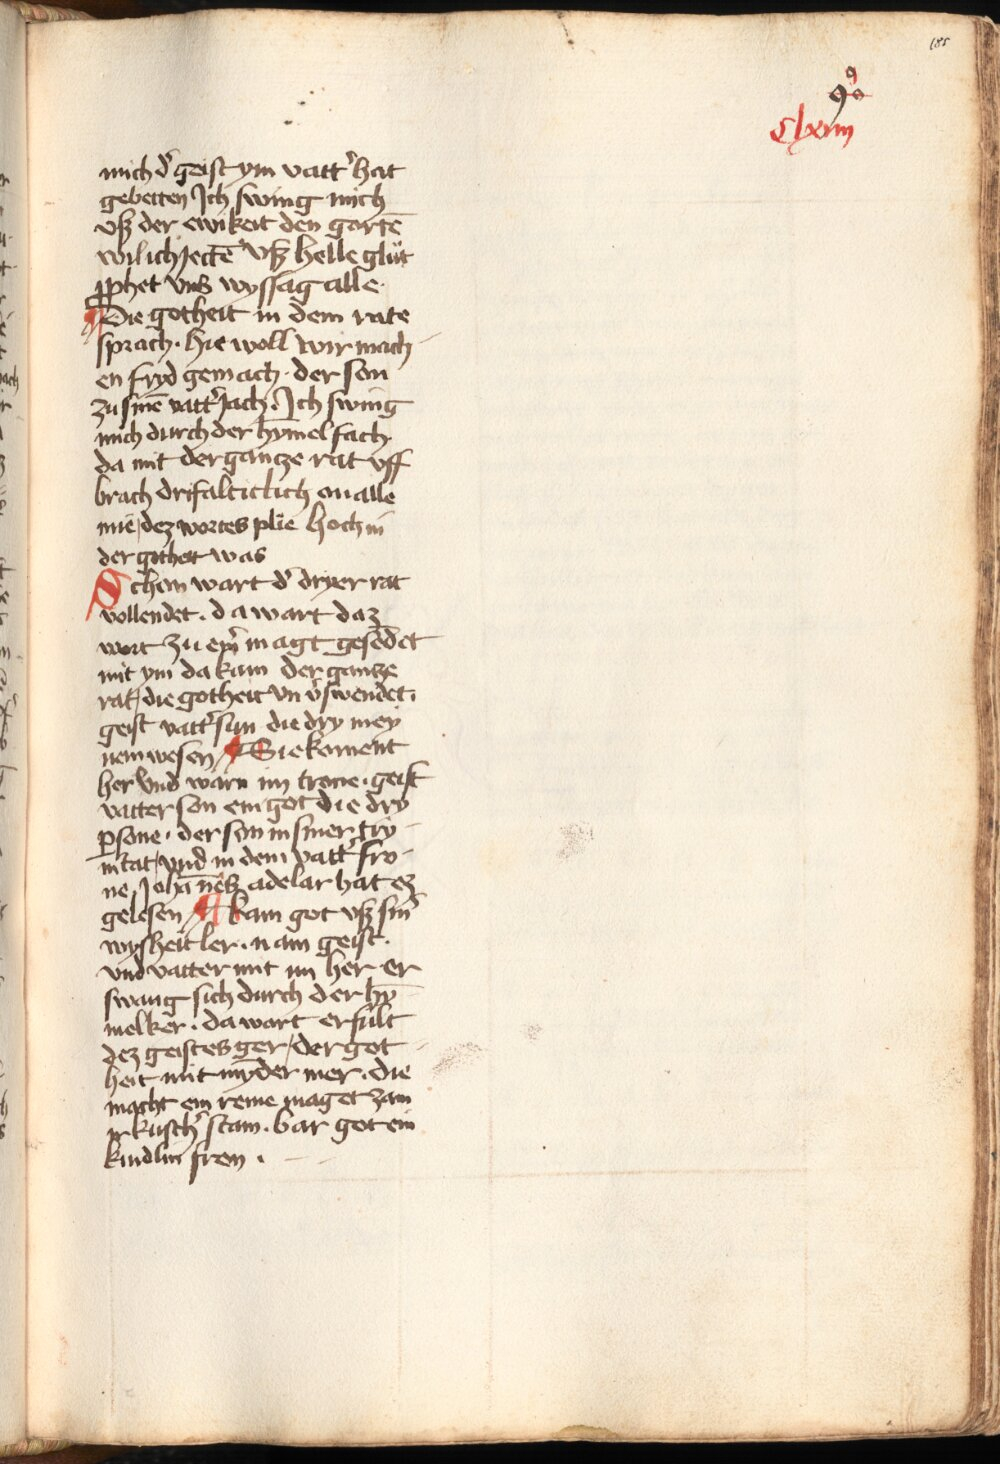 185
99
Clxiiii
mich d̾ geist ym vatt̾ hat
gebetten Jch swing mich
vß der ewikeit den gartē
wil ich Jectē vß helle glüt
ꝓphet vns wyssag alle ·
Die gotheit in dem rate
sprach · hie woll wir mach
en fryd gemach · der son
zu sinē vatt̾ Jach · Jch swing
mich durch der hym̄el fach
da mit der gantze rat vff
brach drifalticlich on alle
mie / dez wortes plie hoch in
der gotheit was
Schon wart d̾ dryer rat
vollendet · da wart daz
wort zu eyn̾ magt gesēdet
mit ym da kam der gantze
rat / die gotheit vn v̾swendet ·
geist vatt̾ sun die dry mey
nem wesen Sie koment
her vnd warn im trone · geist
vatter son ein got die dry
ꝑsone · der son in siner try
nitat / vnd in dem vatt̾ fro
ne · Johān̄es adelar hat ez
gelesen kam got vß sin̾
wysheit ler · nam geist ·
vnd vatter mit im her · er
swang sich durch der hȳ
melker · da wart erfült
dez geistes ger / der got
heit mit mȳder mer · die
macht ein reine maget zam
ir kusch̾ stam · bar got ein
kindlin fron ·